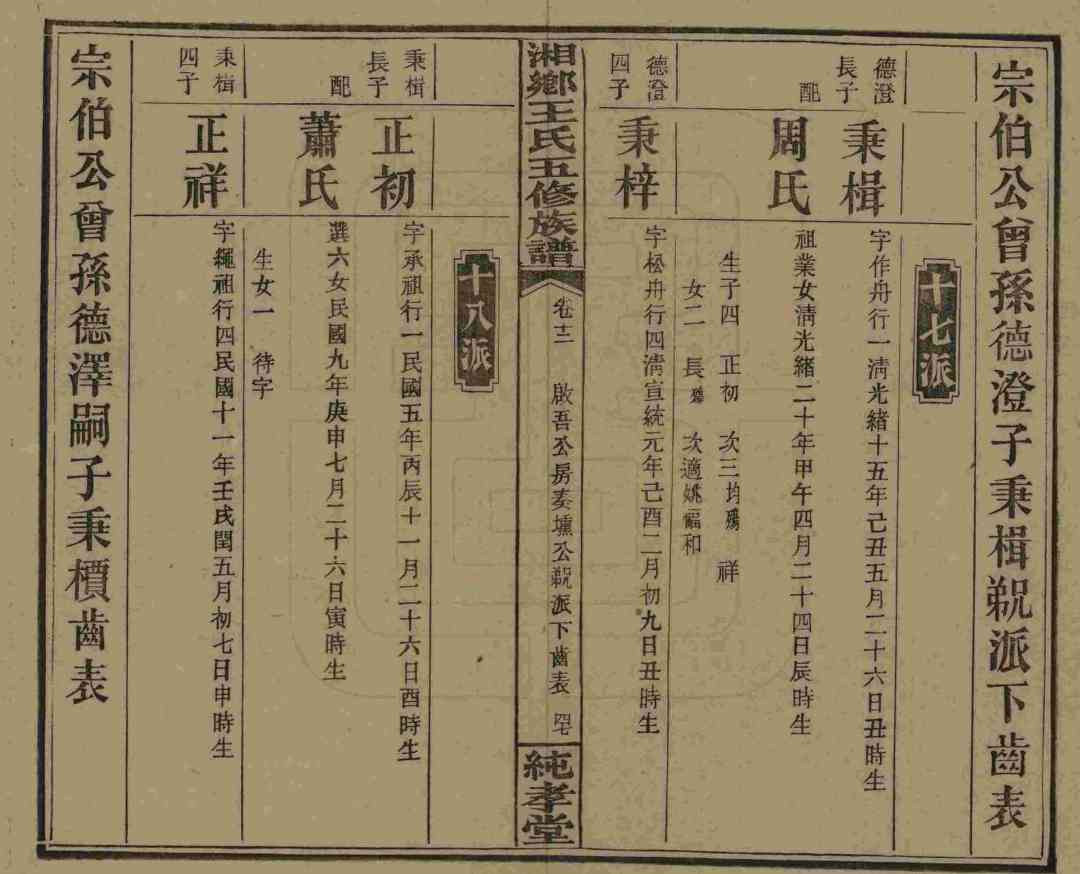 宗伯公曾孫德澄子秉楫覜派下齒表
十七派
德澄
長子
秉楫
字作舟行一清光緒十五年己丑五月二十六日丑時生
配
周氏
祖業女淸光緒二十年甲午四月二十四日辰時生
生子四 正初 次三均殤 祥
女二 長殤 次適姚福和
德澄
四子
秉梓
字松舟行四淸宣統元年己酉二月初九日丑時生
湘鄉王氏五修族譜
卷十二 啟吾公房奏壎公覜派下齒表
純孝堂
十八派
秉楫
長子
正初
字承祖行一民國五年丙辰十一月二十六日酉時生
配
蕭氏
選六女民國九年庚申七月二十六日寅時生
生女一 待字
秉楫
四子
正祥
字繩祖行四民國十一年壬戌閏五月初七日申時生
宗伯公曾孫德澤嗣子秉檟齒表